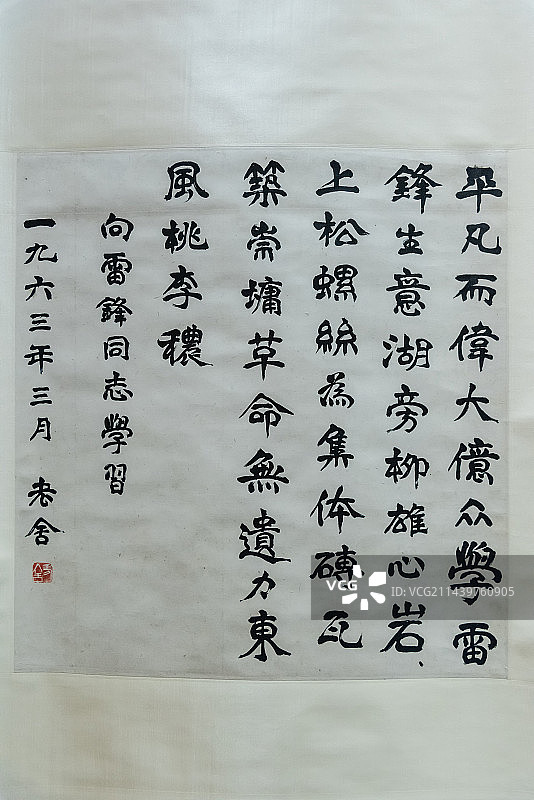 平凡而偉大億众學雷
鋒生意湖旁柳雄心岩
上松螺絲為集体磚瓦
築崇墉草命無遺力東
風桃李穠
向雷鋒同志學習
一九六三年三月 老舍
VCG
ID:VCG211439760905